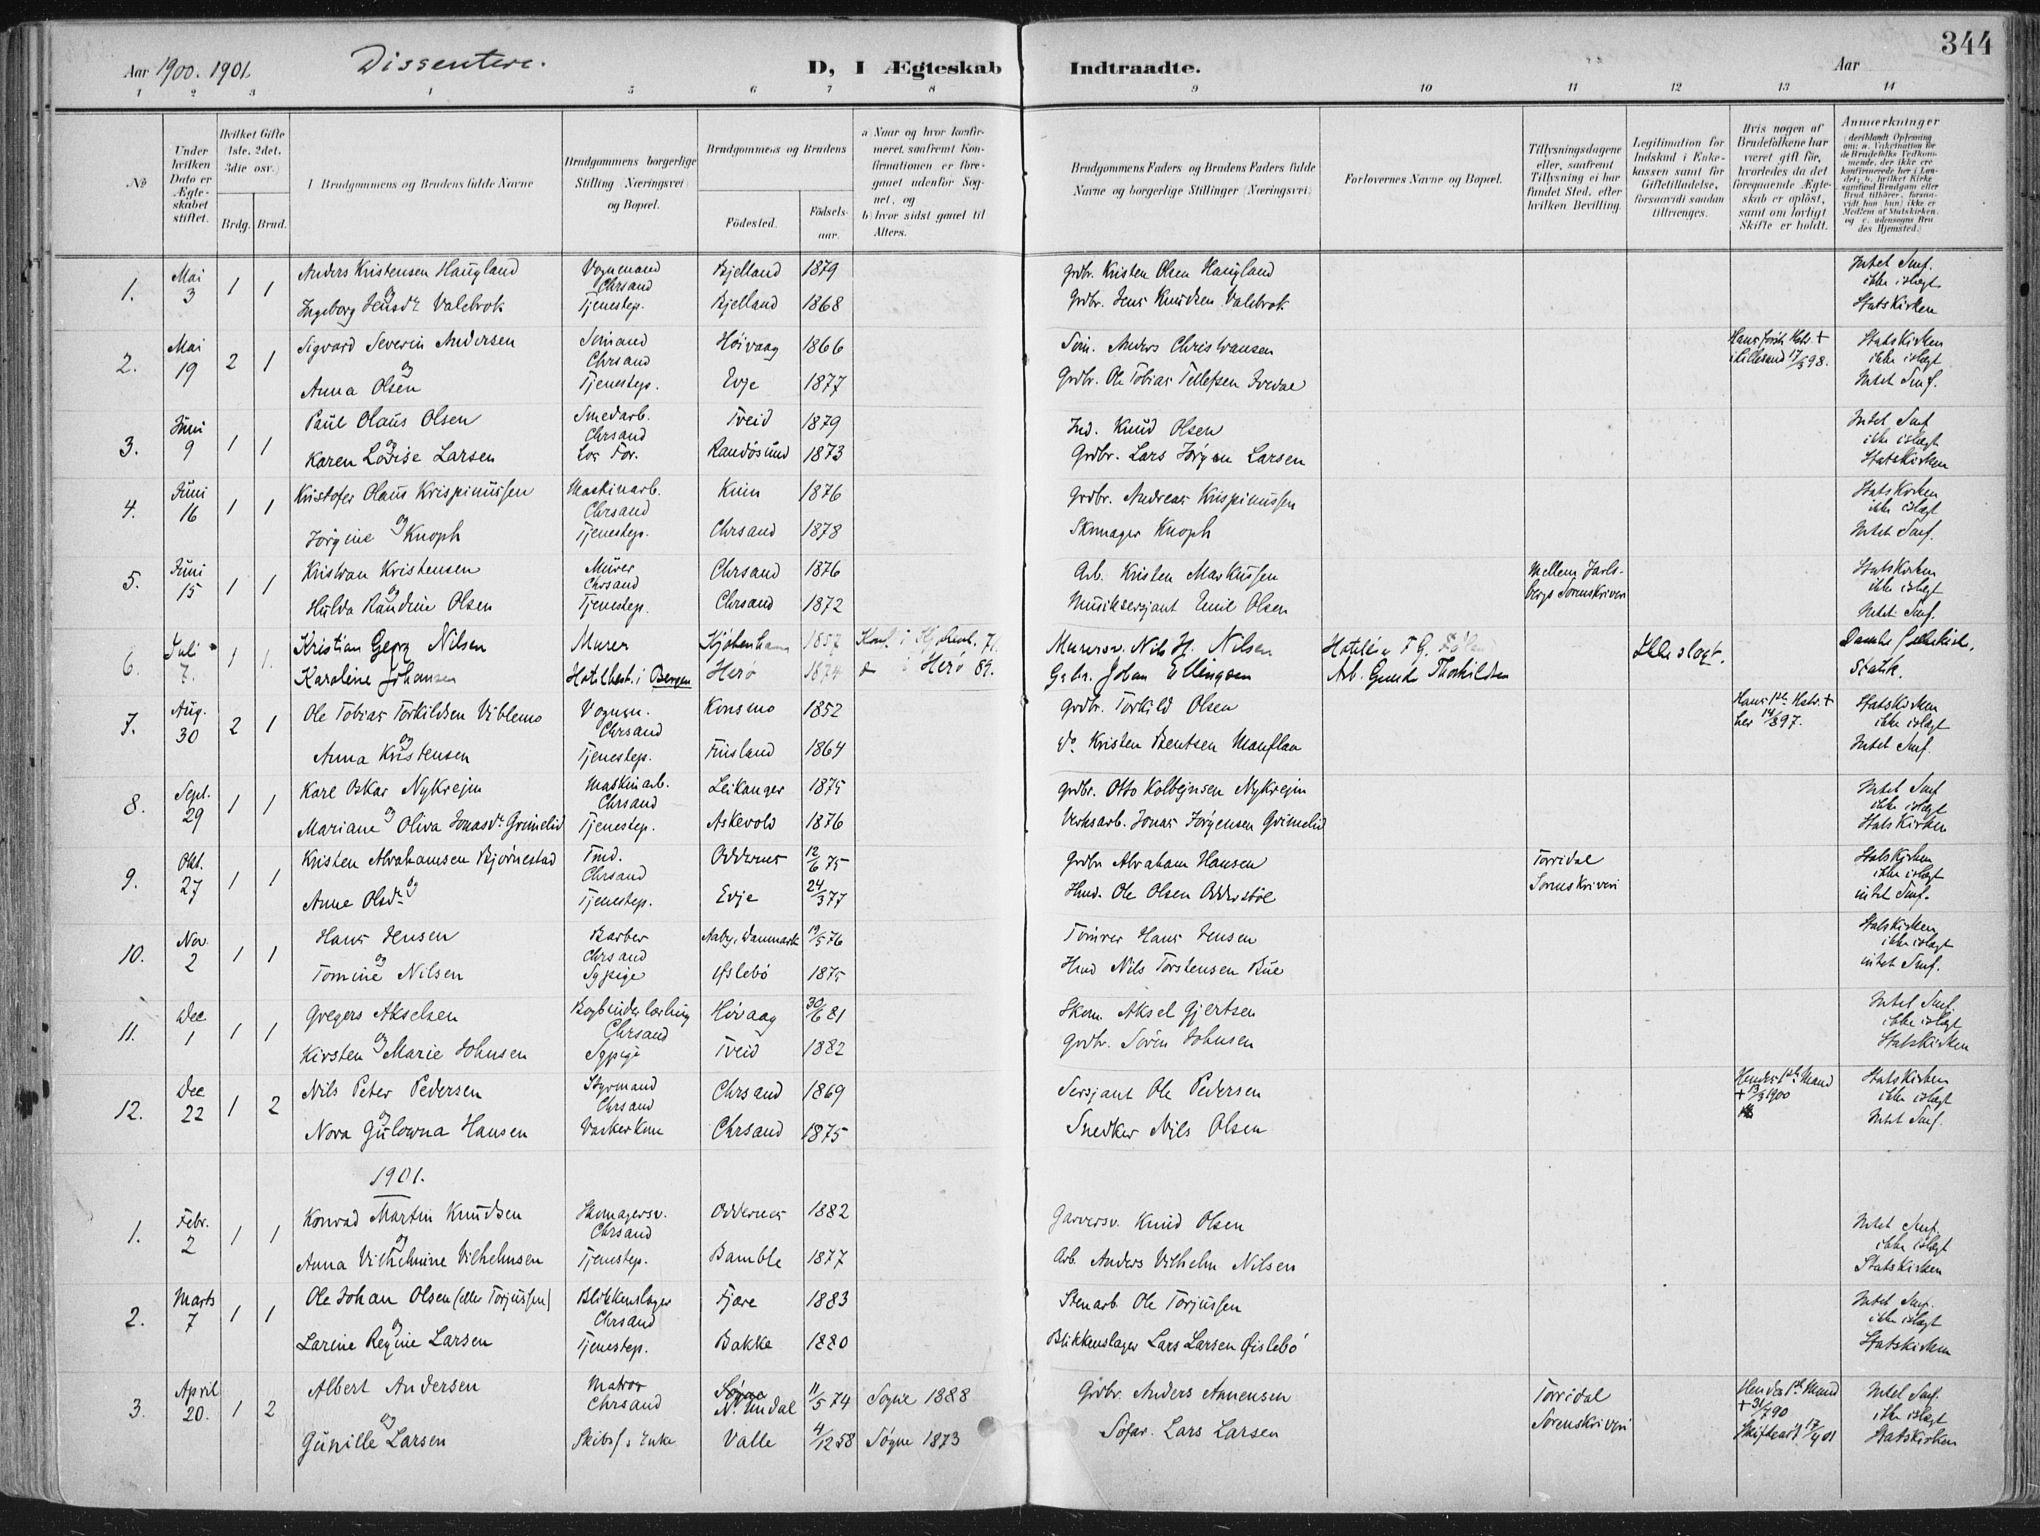 344
Aar 1900. 1901. Dissentere. D, I Ægteskab Indtraadte. Aar
1 2 3 4 5 6 7 8 9 10 11 12 13 14
No
Under hvilken Dato er Ægteskabet stiftet.
Hvilket Gifte (1ste, 2det, 3die osv.)
Brdg. Brud.
Brudgommens og Brudens fulde Navne
Brudgommens borgerlige Stilling (Næringsvei) og Bopæl.
Brudgommens og Brudens
Födested.
Födselsaar.
a) Naar og hvor konfirmeret, saafremt Konfirmationen er foregaaet udenfor Sognet, og
b) hvor sidst gaaet til Alters.
Brudgommens Faders og Brudens Faders fulde Navne og borgerlige Stillinger (Næringsvei).
Forlovernes Navne og Bopæl.
Tillysningsdagene eller, saafremt Tillysning ei har fundet Sted, efter hvilken Bevilling.
Legitimation for Indskud i Enkekassen samt for Giftetilladelse, forsaavidt saadan tiltrenges.
Hvis nogen af Brudefolkene har været gift før, hvorledes da det foregaaende Ægteskab er oplöst, samt om lovligt Skifte er holdt.
Anmærkninger
1. Mai 3 1 1 Anders Kristensen Haugland Vognmand Chrsand Bjelland 1879 Grdbr. Kristen Olsen Haugland Intet Smf.
og ikke islægt
Ingeborg Jensdr. Valebrok Tjenestep. Bjelland 1868 Grdbr. Jens Knudsen Valebrok Statskirken
2. Mai 19 2 1 Sigvard Severin Andersen Sømand Chrsand Høivaag 1866 Søm. Anders Christiansen Statskirken
og ikke islægt
Anna Olsen Tjenestep. Evje 1877 Grdbr. Ole Tobias Tellefsen Intet Smf.
3. Juni 9 1 1 Paul Olaus Olsen Smedarb. Chrsand Tveid 1879 Ind. Knud Olsen Intet Smf
og ikke islægt
Karen Lovise Larsen Randøsund 1873 Grdbr. Lars Jørgen Larsen Statskirken
4. Juni 16 1 1 Kristofer Olaus Krispinussen Maskinarb. Chrsand 1876 Grdbr. Andreas Krispinussen Statskirken
og ikke islægt
Jørgine Knoph Tjenestep. Chrsand 1878 Skomager Knoph Intet Smf.
5. Juni 15 1 1 Kristian Kristensen Murer Chrsand Chrsand 1876 Arb. Kristen Markussen Mellem Jarls- Statskirken
og bergs Sorenskriveri ikke islægt
Hulda Randine Olsen Tjenestep. Chrsand 1872 Musiksergjant Emil Olsen Intet Smf.
6. Juli 7. 1 1. Kristian Georg Nilsen Murer Kjøbenhavn 1857 Konf. i Kjøbenh. 71. Murersv. Nils H. Nilsen Ikke slægt.
Karoline Johansen Hotelbest. i Bergen Herø 1874 do i Herø 89. Johan Ellingsen Arb. Thorkildsen Statsk.
7. Aug. 30 2 1 Ole Tobias Torkildsen Viblemo Vognm. Chrsand Konsmo 1852 Grdbr. Torkild Olsen Hans 1ste Hstr. + her 14/3 97. Statskirken
og ikke islægt
Anna Kristensen Tjenestep. Finsland 1864 do Kristen Bentsen Manflaa Intet Smf.
8. Sept. 29 1 1 Karl Oskar Nykrejm Maskinarb. Chrsand Leikanger 1875 Grdbr. Otto Kolbejnsen Nykrejm Intet Smf
og ikke islægt
Mariane Oliva Jonasdr. Grimelid Tjenestep. Askevold 1876 Verksarb. Jonas Jørgensen Grimelid Statskirken
9. Okt. 27 1 1 Kristen Abrahamsen Bjørnestad Tmd. Chrsand Oddernes 12/6 75 Grdbr Abraham Hansen Torridal Statskirken
og Sorenskriveri ikke islægt
Anne Olsdr. Tjenestep. Evje 24/3 77 Hmd. Ole Olsen Odderstøl intet Smf.
10. Nov. 2 1 1 Hans Jensen Barber Chrsand Aaby, Danmark 19/5 76 Tømrer Hans Jensen Statskirken
og ikke islægt
Tomine Nilsen Sypige Øslebö 1875 Hmd Nils Torstensen Bue intet Smf.
11. Dec 1 1 1 Gregers Akselsen Bogbinderlærling Chrsand Høvaag 30/6 81 Skom. Aksel Gjertsen Intet Smf.
og ikke islægt
Kirsten Marie Johnsen Sypige Tveid 1882 Grdbr. Sören Johnsen Statskirken
12. Dec 22 1 2 Nils Peter Pedersen Styrmand Chrsand Chrsand 1869 Sersjant Ole Pedersen Hendes 1ste Mand + 1900 Statskirken
og ikke islægt
Nora Gulowna Hansen Vaskerkone Chrsand 1875 Snedker Nils Olsen Intet Smf.
1901.
1. Febr. 2 1 1 Konrad Martin Knudsen Skomagersv. Chrsand Oddernes 1882 Garversv. Knud Olsen Intet Smf.
og ikke islægt
Anna Vilhelmine Vilhelmsen Tjenestep. Bamble 1877 Arb. Anders Vilhelm Nilsen Statskirken
2. Marts 7 1 1 Ole Johan Olsen (eller Torjussen) Blikkenslager Chrsand Fjære 1883 Stenarb. Ole Torjussen Intet Smf.
og ikke islægt
Larine Regine Larsen Tjenestep. Bakke 1880 Blikkenslager Lars Larsen Øislebö Statskirken
3. April 20. 1 2 Albert Andersen Matros Chrsand N. Undal 11/5 74 Sogne 1888 Grdbr. Anders Annensen Torridal Hendes 1ste Mand Intet Smf.
og Sorenskriveri + 31/7 90 ikke islægt
Gunille Larsen Skibsf.s Enke Valle 4/12 58 Søgne 1873 Lars Larsen Skifteatt. 17/4 01 Statskirken